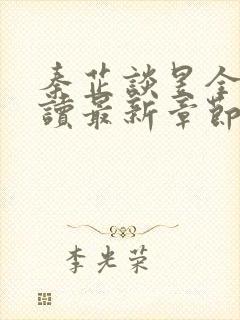 秦芷談昱全
讀最新章節
李光荣